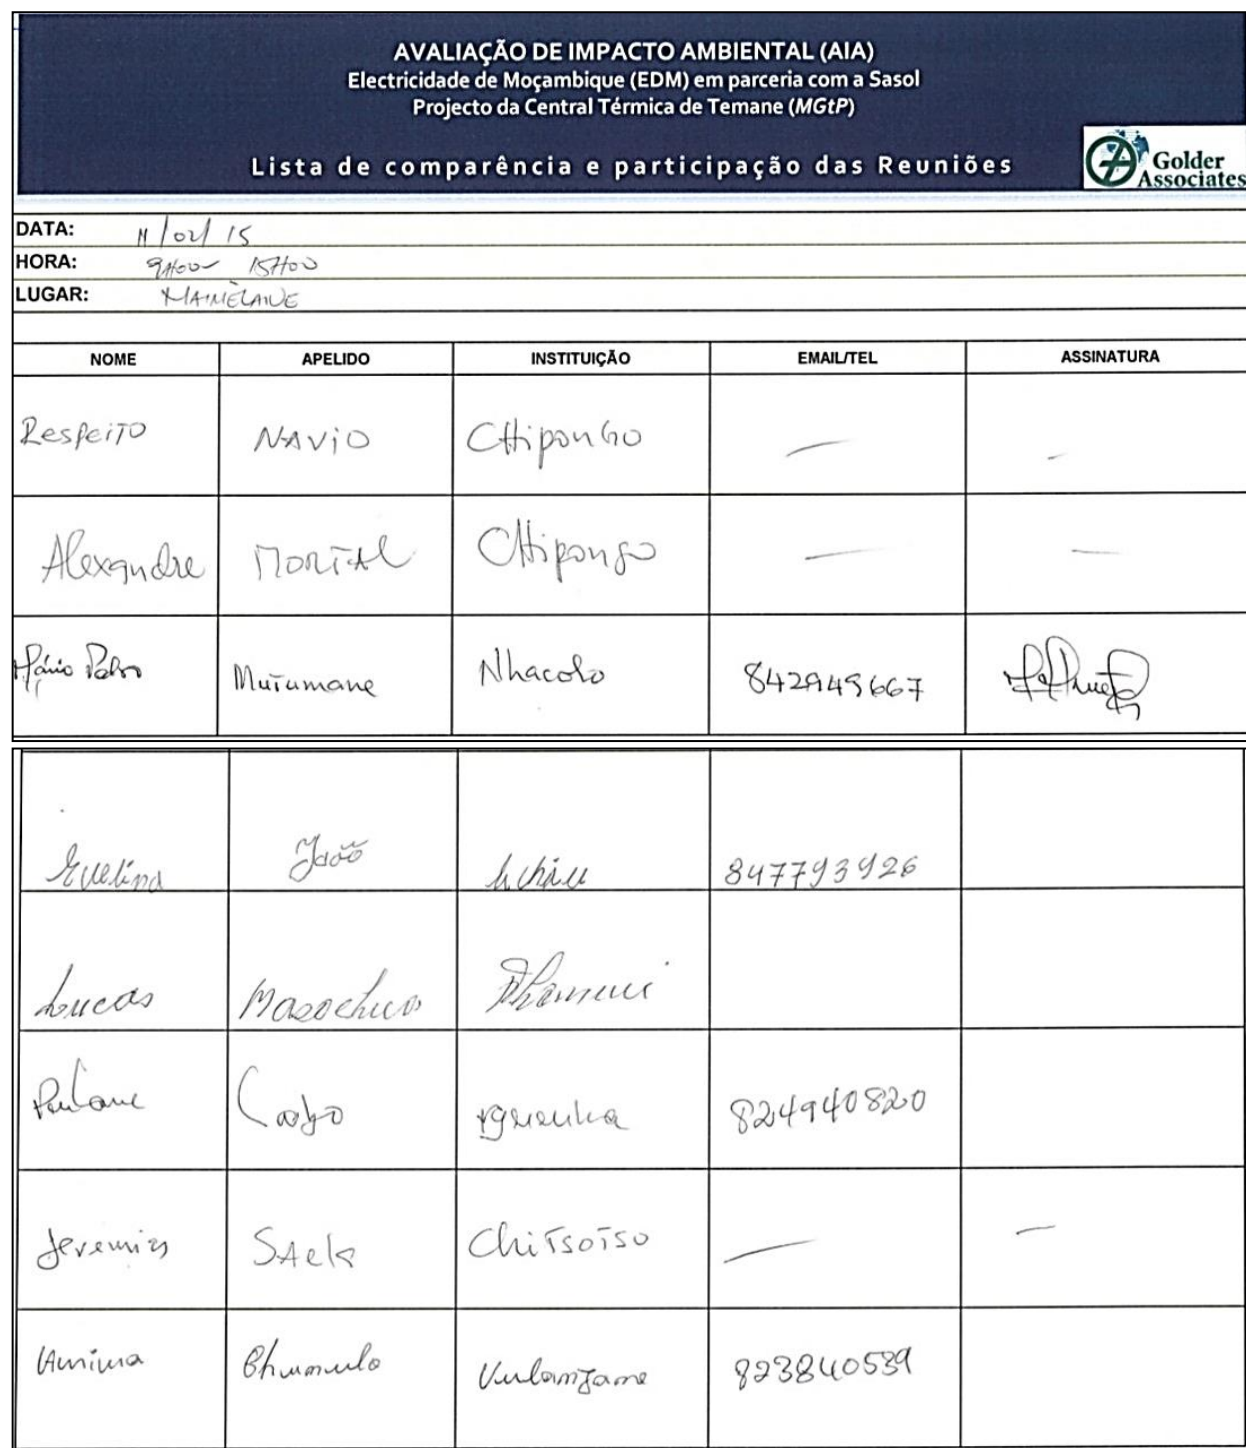 AVALIAÇÃO DE IMPACTO AMBIENTAL (AIA)
Electricidade de Moçambique (EDM) em parceria com a Sasol
Projecto da Central Térmica de Temane (MGtP)
Lista de comparência e participação das Reuniões
Golder
Associates
DATA: 11/02/15
HORA: 9H00 15H00
LUGAR: MAIMELANE
NOME APELIDO INSTITUIÇÃO EMAIL/TEL ASSINATURA
Respeito NAVIO CHipongo — -
Alexandre MORTAL CHipongo — —
Mário Pedro Mutumane Nhacolo 842949667
Evelina João 847793926
Lucas
Cabo 824940820
Jeremias Chitsotso — —
Amima Vulanjane 823840539